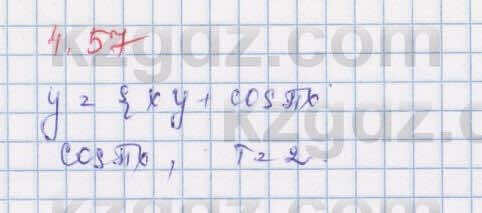 4.57
y = {x} + cos πx
cos πx, T = 2
kzgdz.com
kzgdz.com
kzgdz.com